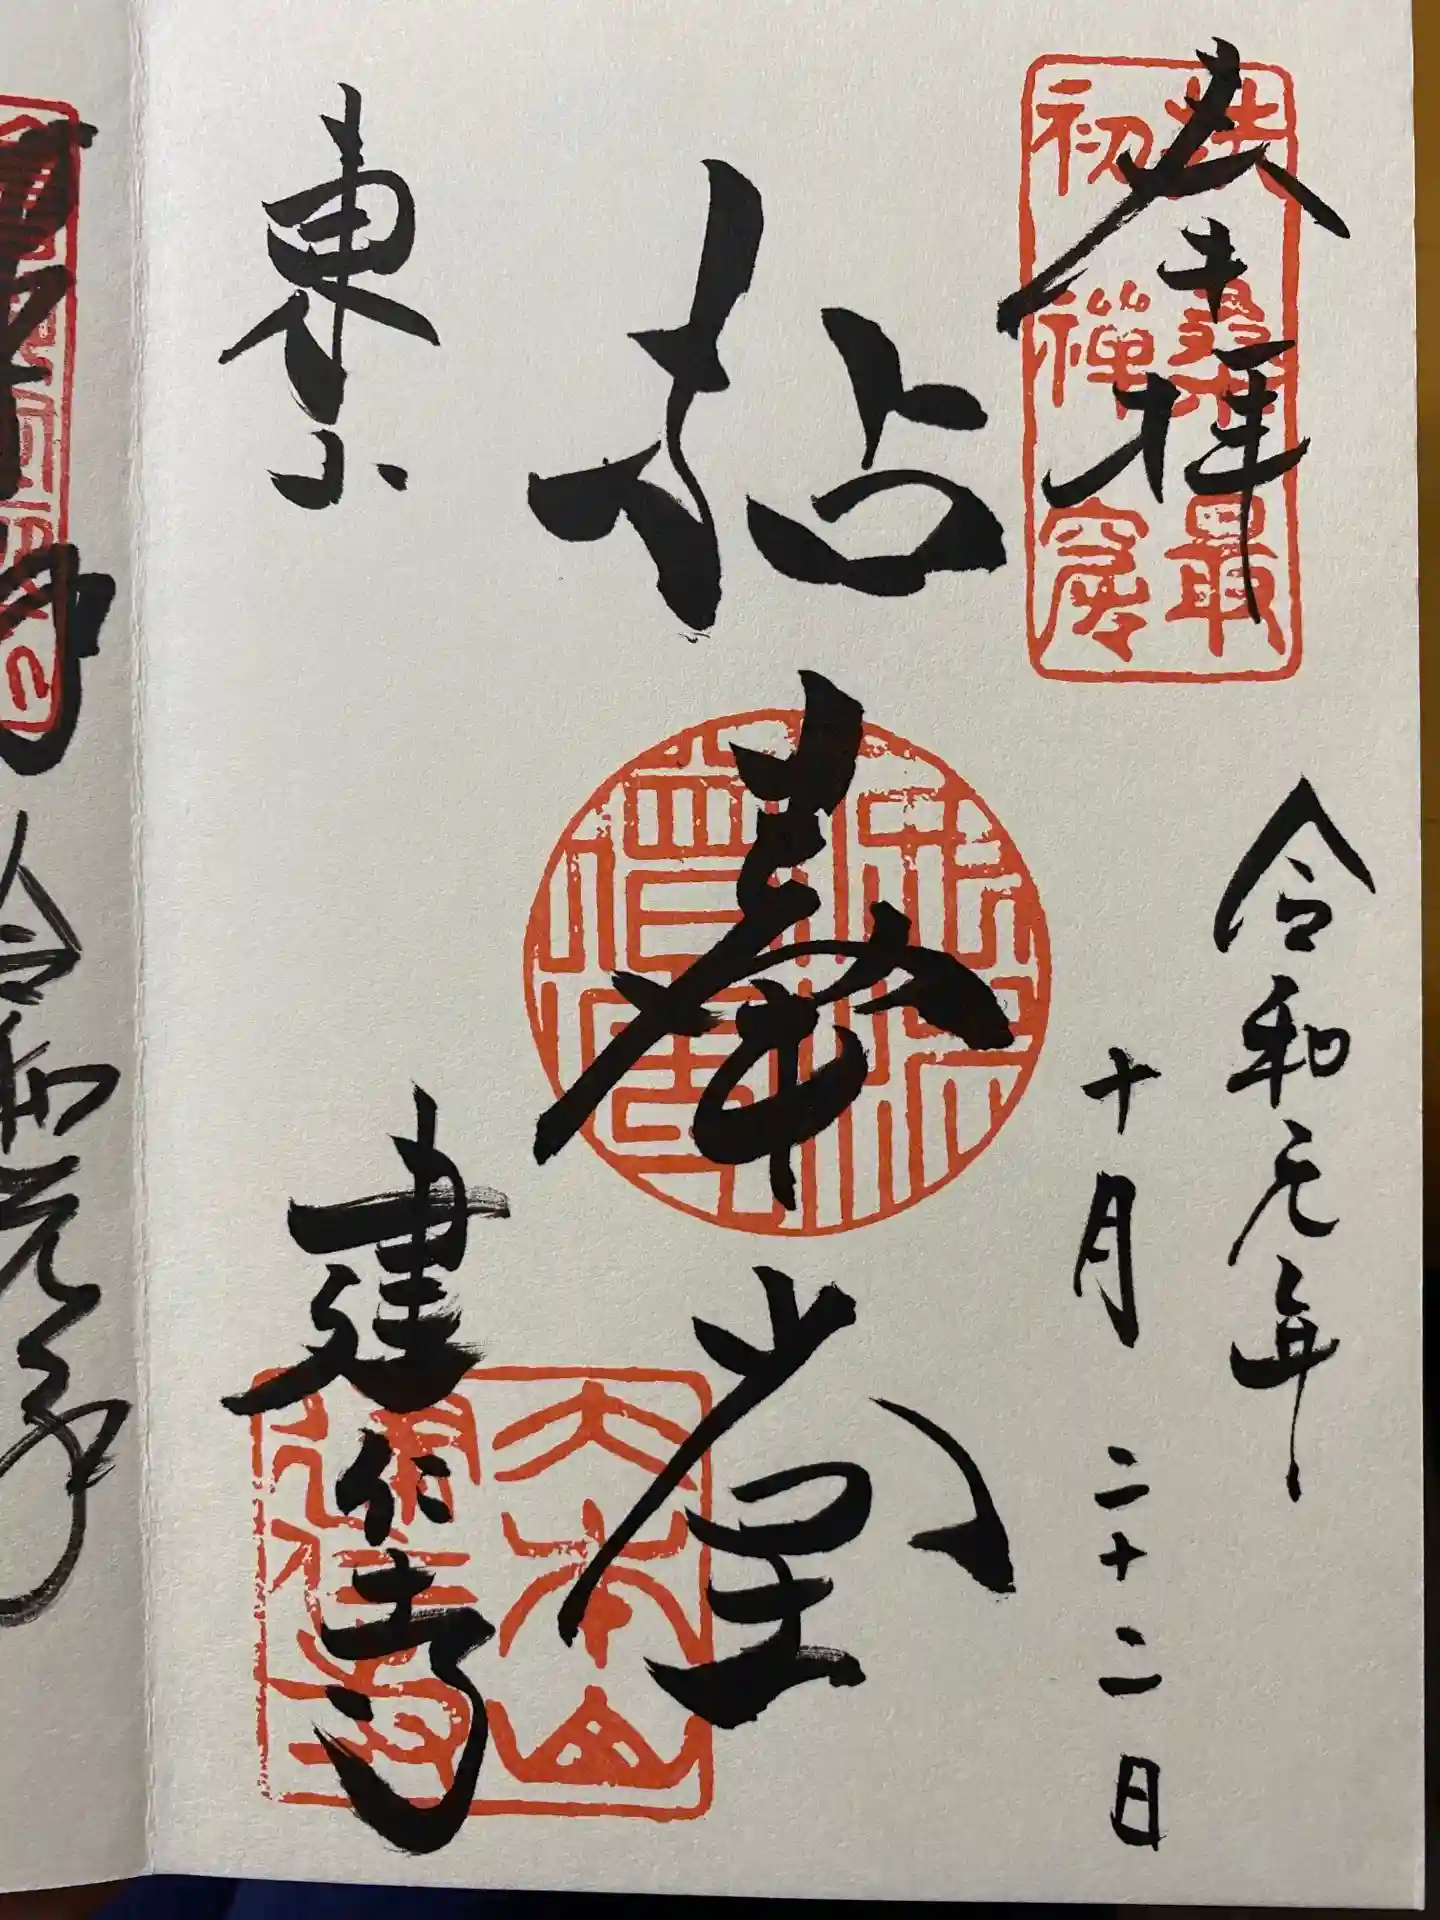 奉拝
扶桑最
初禅窟
令和元年
十月二十二日
拈華堂
東山
建仁寺
大本山
建仁寺
令和元年